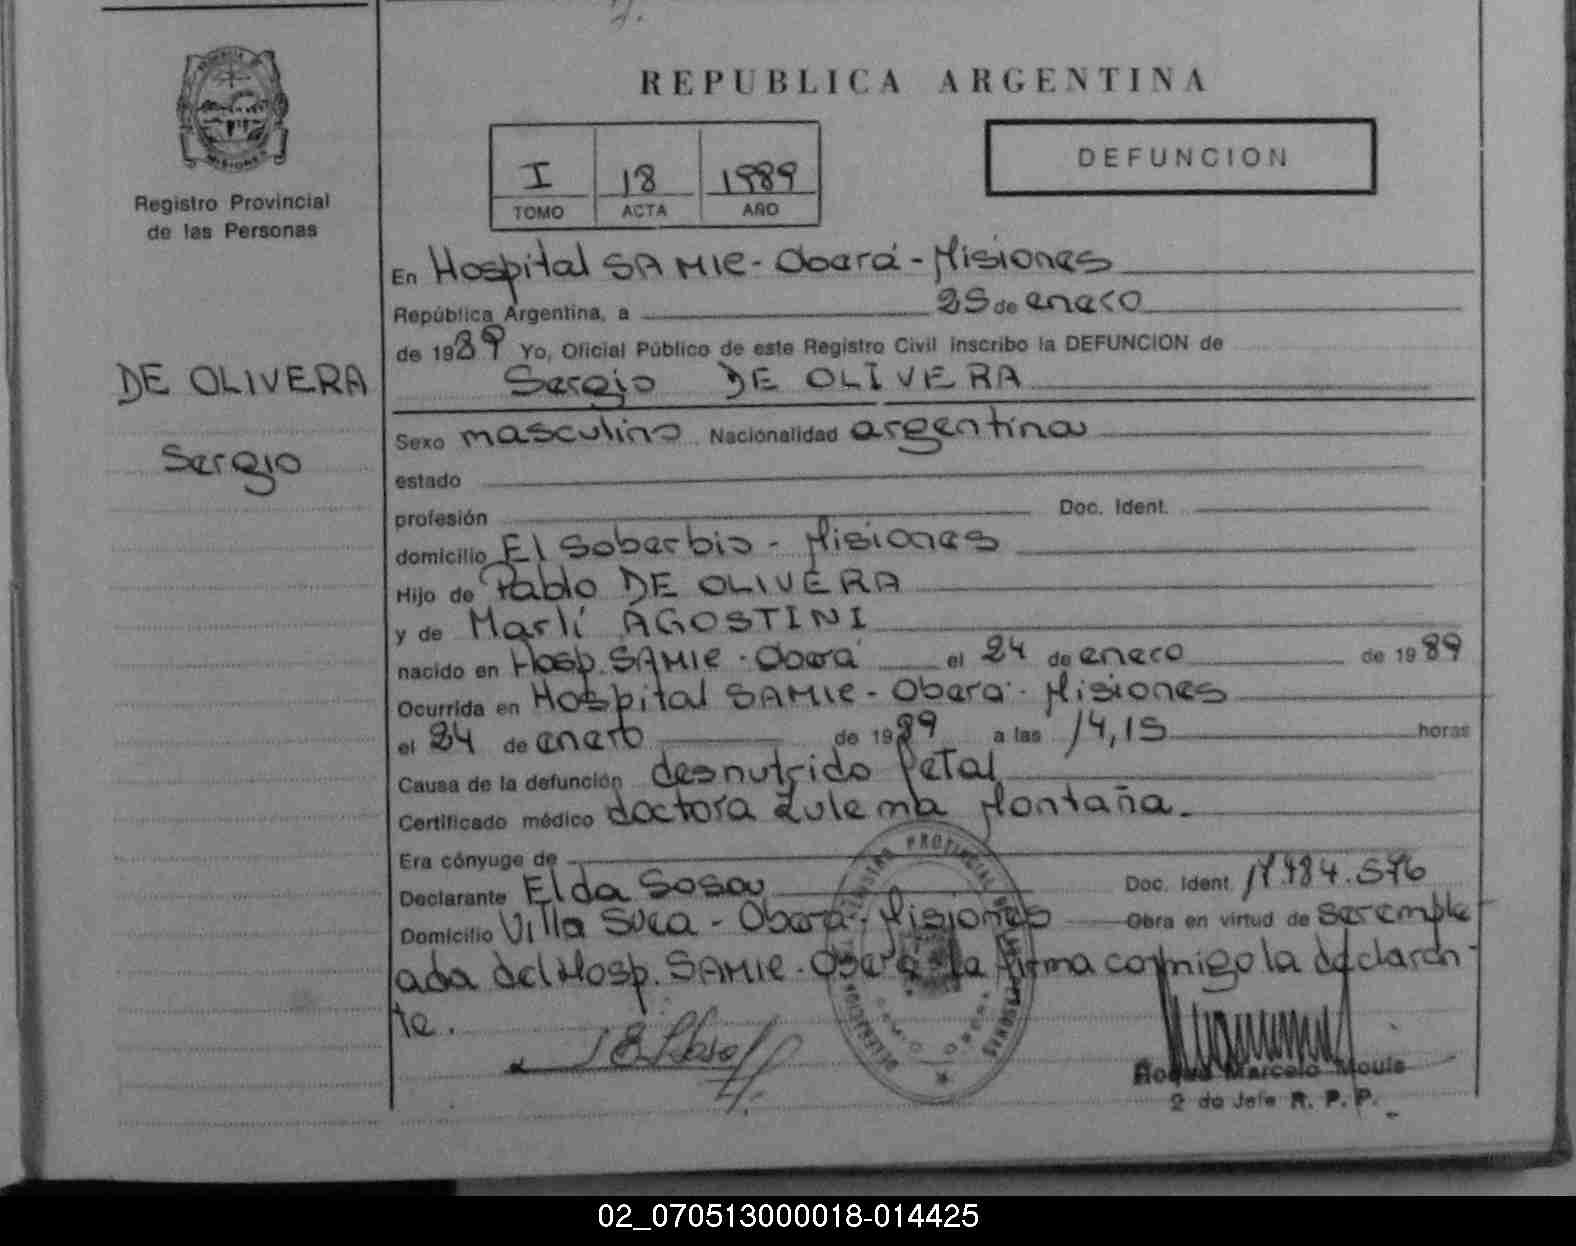 REPUBLICA ARGENTINA
MISIONES
Registro Provincial
de las Personas
I 18 1989
TOMO ACTA AÑO
DEFUNCION
DE OLIVERA
Sergio
En Hospital SAMIC - Oberá - Misiones
República Argentina, a 25 de enero
de 1989 Yo, Oficial Público de este Registro Civil inscribo la DEFUNCION de
Sergio DE OLIVERA
Sexo masculino Nacionalidad argentina
estado
profesión Doc. Ident.
domicilio El Soberbio - Misiones
Hijo de Pablo DE OLIVERA
y de Marlí AGOSTINI
nacido en Hosp. SAMIC - Oberá el 24 de enero de 1989
Ocurrida en Hospital SAMIC - Oberá - Misiones
el 24 de enero de 1989 a las 14,15 horas
Causa de la defunción desnutrido fetal
Certificado médico doctora Zulema Montaña.
Era cónyuge de
Declarante Elda Sosa Doc. Ident.
Domicilio Villa Suca - Oberá - Misiones Obra en virtud de ser emple
ada del Hosp. SAMIC - Oberá - la firma conmigo la declaran-
te.
Marcelo
2 do Jefe R. P. P.
02_070513000018-014425